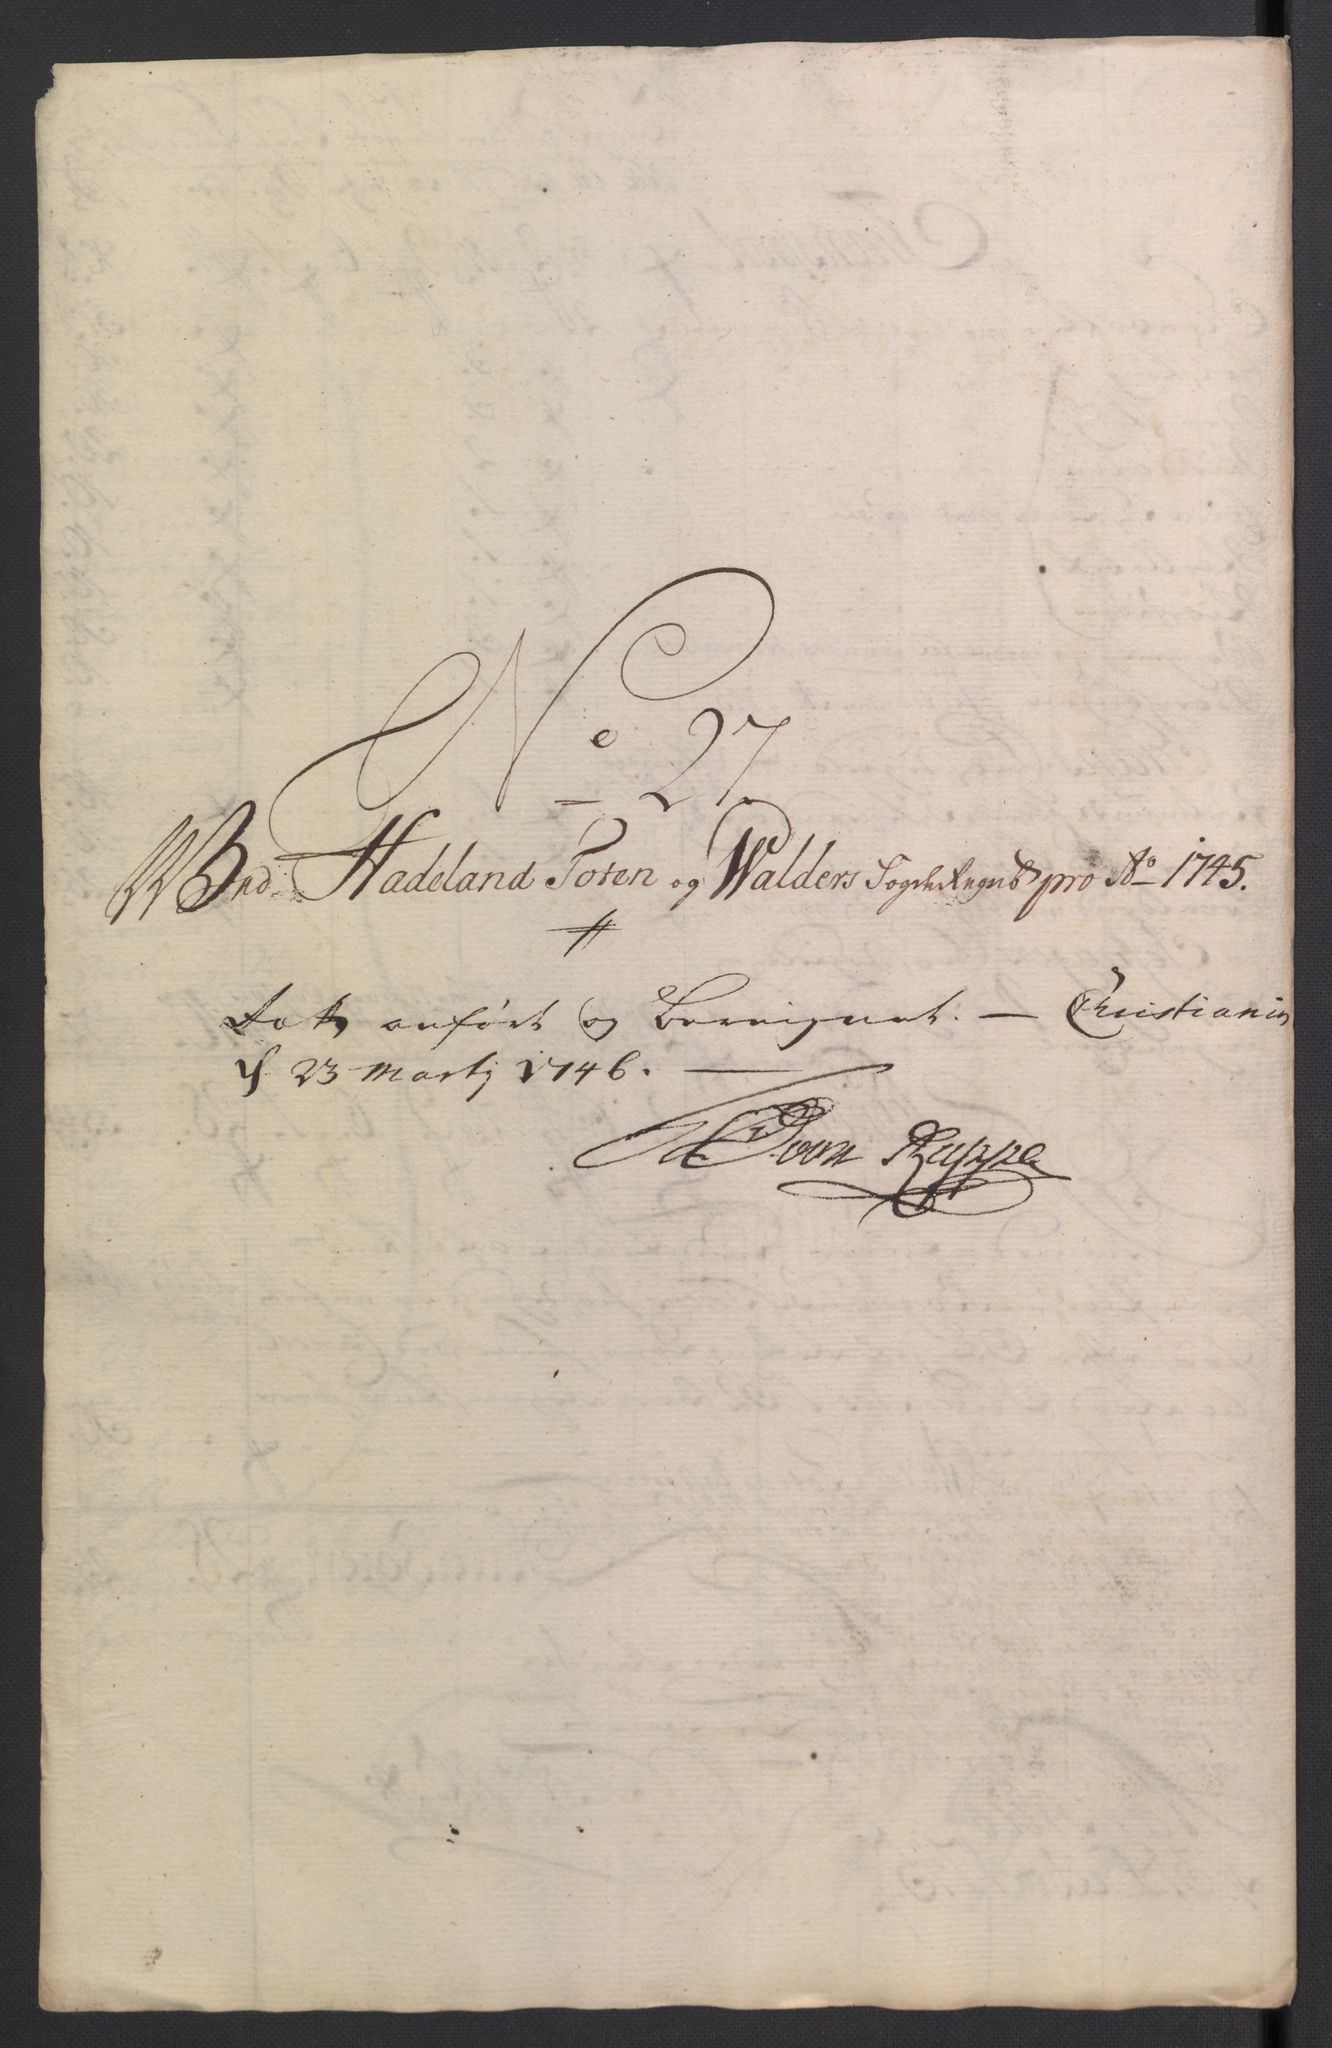 No 27
Hadeland Toten og Walders Fogderegnsk pro Ao 1745.
anført og Beregnet. — Christiania
d 23 Martij 1746. —